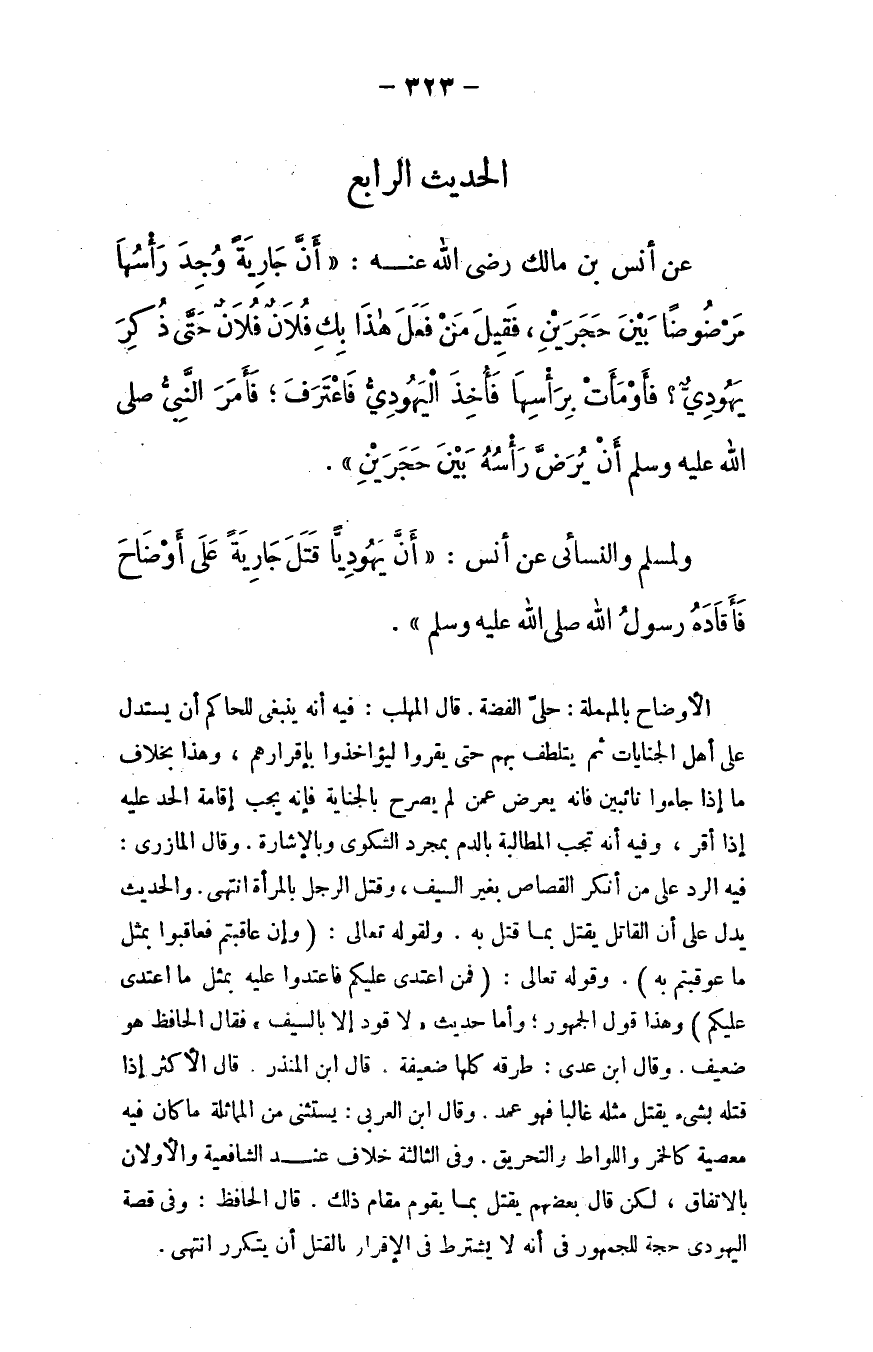 - ٣٢٣ -
الحديث الرابع
عن أنس بن مالك رضى الله عنـــه : « أَنَّ جَارِيَةً وُجِدَ رَأْسُهَا
مَرْضُوضًا بَيْنَ حَجَرَيْنِ ، فَقِيلَ مَنْ فَعَلَ هٰذَا بِكِ فُلاَنٌ فُلاَنٌ حَتَّى ذُكِرَ
يَهُودِيٌّ ؟ فَأَوْمَأَتْ بِرَأْسِهَا فَأُخِذَ الْيَهُودِيُّ فَاعْتَرَفَ ؛ فَأَمَرَ النَّبِيُّ صلى
الله عليه وسلم أَنْ يُرَضَّ رَأْسُهُ بَيْنَ حَجَرَيْنِ » .
ولمسلم والنسائى عن أنس : « أَنَّ يَهُودِيًّا قَتَلَ جَارِيَةً عَلَى أَوْضَاحَ
فَأَقَادَهُ رسولُ الله صلى الله عليه وسلم » .
الأوضاح بالمهملة : حلىّ الفضة . قال المهلب : فيه أنه ينبغى للحاكم أن يستدل
على أهل الجنايات ثم يتلطف بهم حتى يقروا ليؤاخذوا بإقرارهم ، وهذا بخلاف
ما إذا جاءوا تائبين فانه يعرض عمن لم يصرح بالجناية فإنه يجب إقامة الحد عليه
إذا أقر ، وفيه أنه تجب المطالبة بالدم بمجرد الشكوى وبالإشارة . وقال المازرى :
فيه الرد على من أنكر القصاص بغير السيف ، وقتل الرجل بالمرأة انتهى . والحديث
يدل على أن القاتل يقتل بمـا قتل به . ولقوله تعالى : ( وإن عاقبتم فعاقبوا بمثل
ما عوقبتم به ) . وقوله تعالى : ( فمن اعتدى عليكم فاعتدوا عليه بمثل ما اعتدى
عليكم ) وهذا قول الجمهور ؛ وأما حديث « لا قود إلا بالسيف » فقال الحافظ هو
ضعيف . وقال ابن عدى : طرقه كلها ضعيفة . قال ابن المنذر . قال الأكثر إذا
قتله بشىء يقتل مثله غالبا فهو عمد . وقال ابن العربى : يستثنى من المماثلة ما كان فيه
معصية كالخمر واللواط والتحريق . وفى الثالثة خلاف عنـــد الشافعية والأولان
بالاتفاق ، لكن قال بعضهم يقتل بمـا يقوم مقام ذلك . قال الحافظ : وفى قصة
اليهودى حجة للجمهور فى أنه لا يشترط فى الإقرار بالقتل أن يتكرر انتهى .